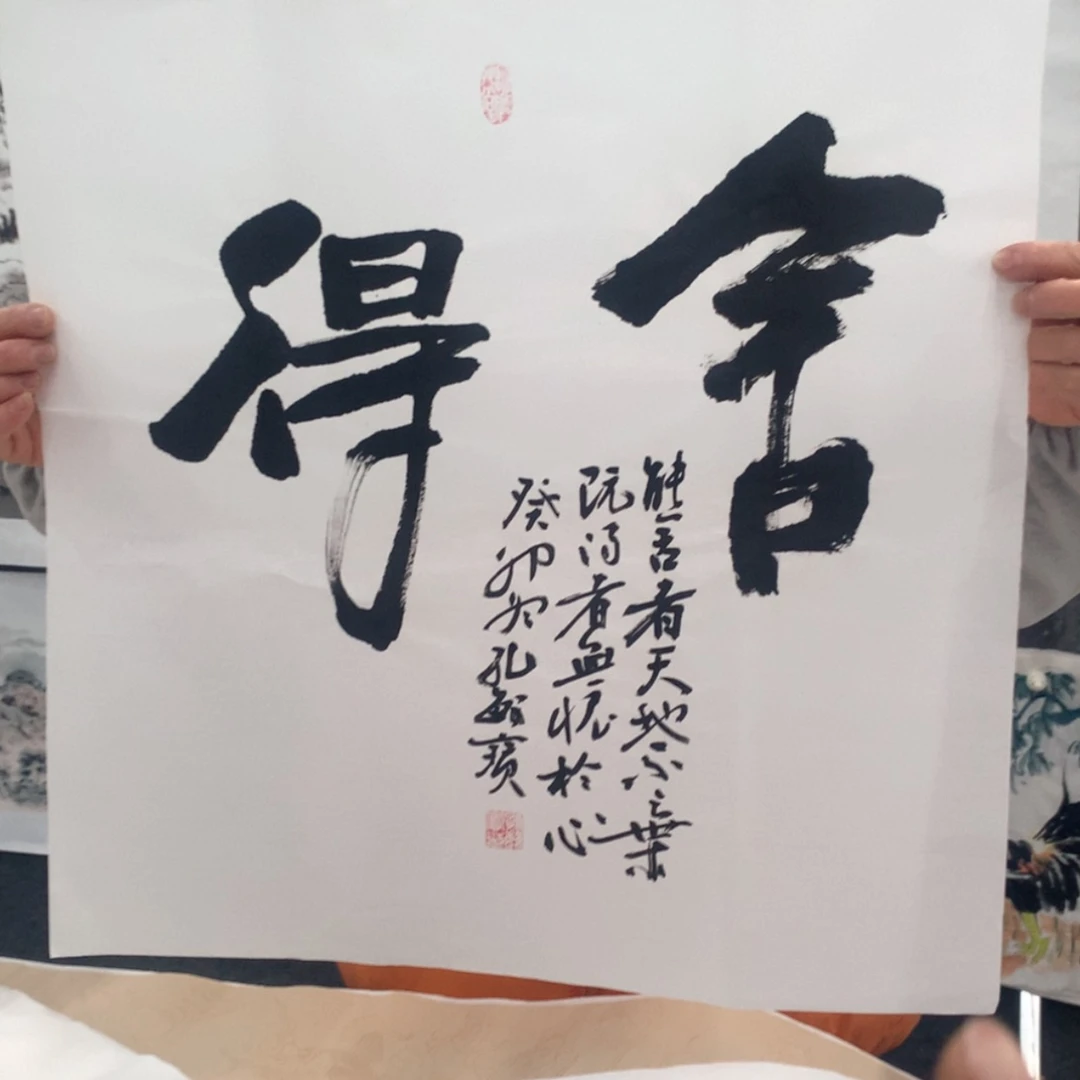 舍得
能舍者天地不弃
既得者无忧於心
癸卯冬孔敏宝